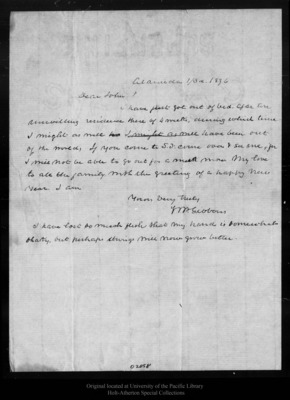 Alameda 1/Jan. 1896
Dear John!
I have just got out of bed after an
unwilling residence there of 2 months, during which time
I might as well have been out
of the world. If you come to S.F. come over & see me, for
I will not be able to go out for a much more. My love
to all the family with the greeting of a happy New
Year. I am
Yours very truly,
W P Gibbons
I have lost so much flesh that my hand is somewhat
shaky, but perhaps things will now grow better.
02058
Original located at University of the Pacific Library
Holt-Atherton Special Collections